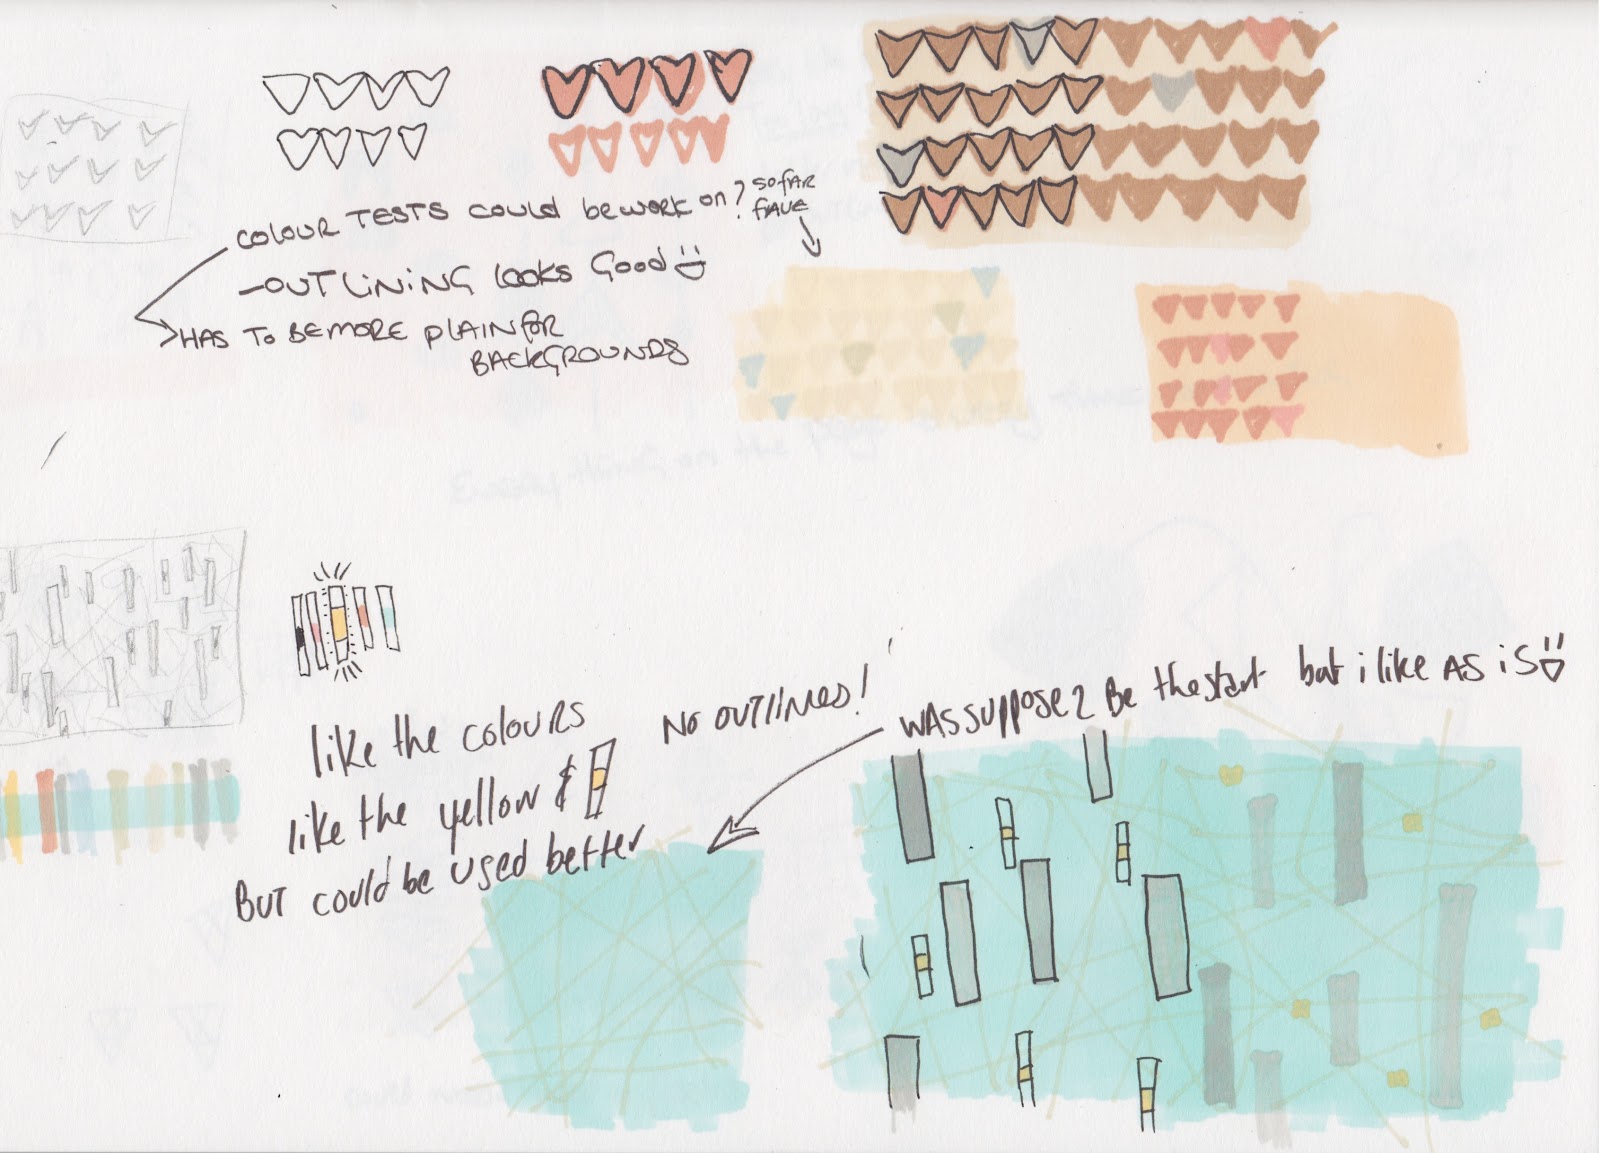 COLOUR TESTS COULD be work on?
SO FAR
FAVE
-OUTLINING looks Good
HAS TO BE MORE PLAIN for
BACKGROUNDS
Everything on the page
like the colours
No OUTLINES!
like the yellow &
BUT could be used better
WAS SUPPOSE 2 Be the start but i like AS iS